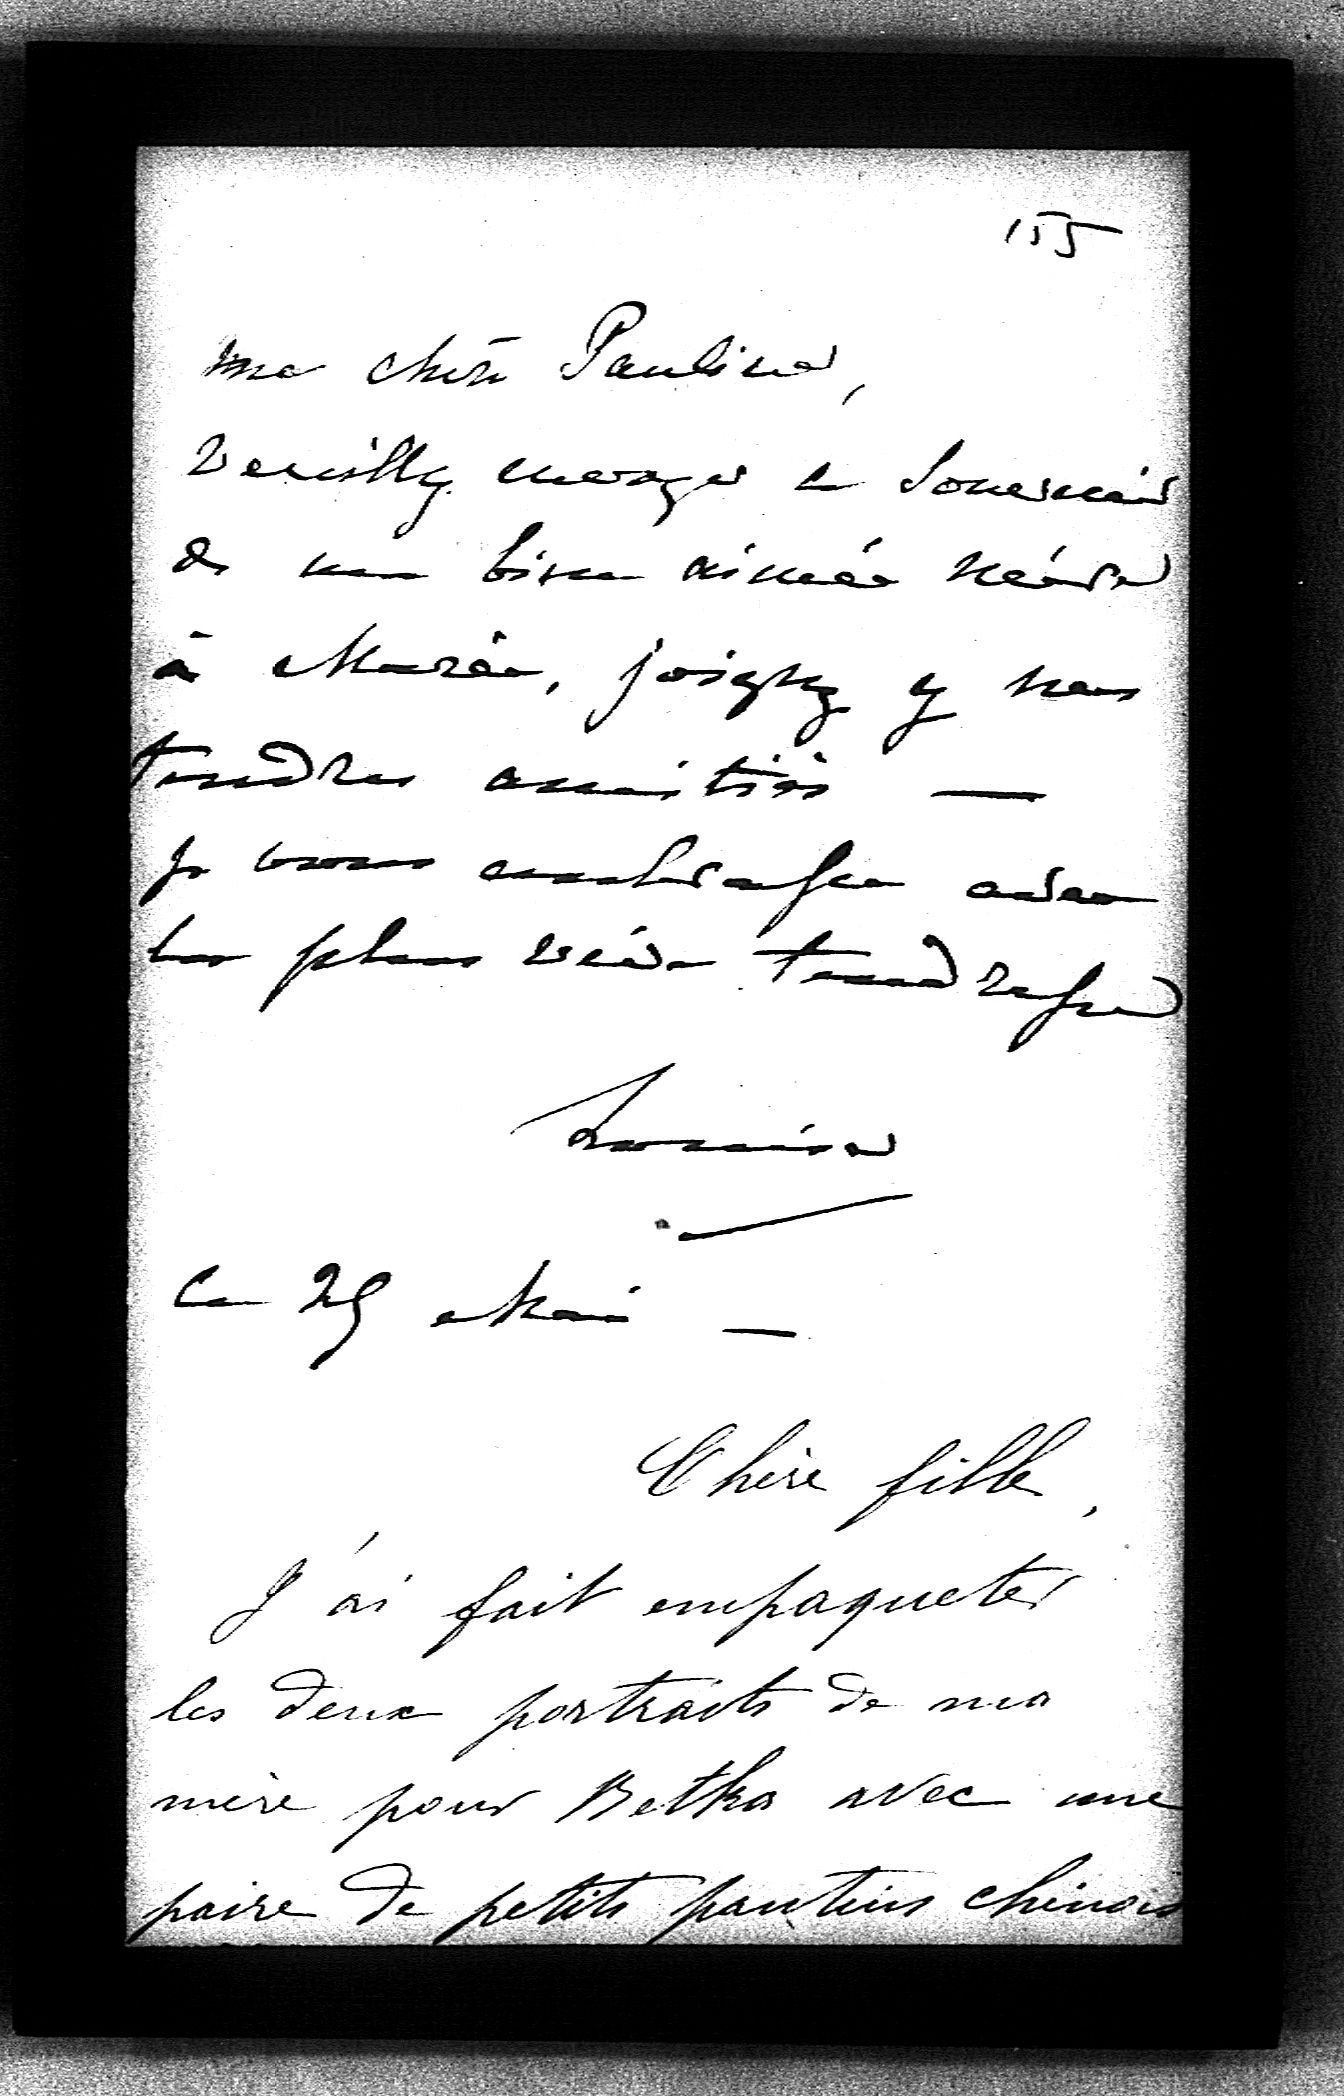 155
ma chère Pauline,
Veuillez envoyer ce souvenir
de ma bien aimée
à Marie, joignez y mes
tendres amitiés —
je vous embrasse avec
la plus vive tendresse
Louise
Ce 29 Mai —
Chère fille,
J'ai fait empaqueter
les deux portraits de ma
mère pour Betka avec une
paire de petits pantins chinois